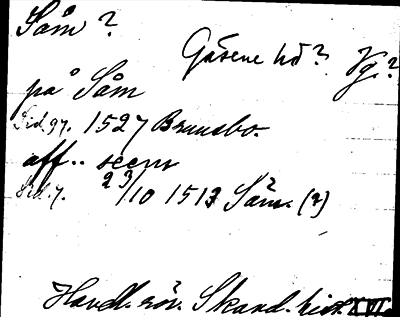 Såm ?
Gäsene hd ? Vg. ?
på Såm
Sid. 97. 1527 Brunsbo.
aff ..
Sid. 7. 23/10 1513 Såm. (?)
Handl. rör. Skand. hist. XVI